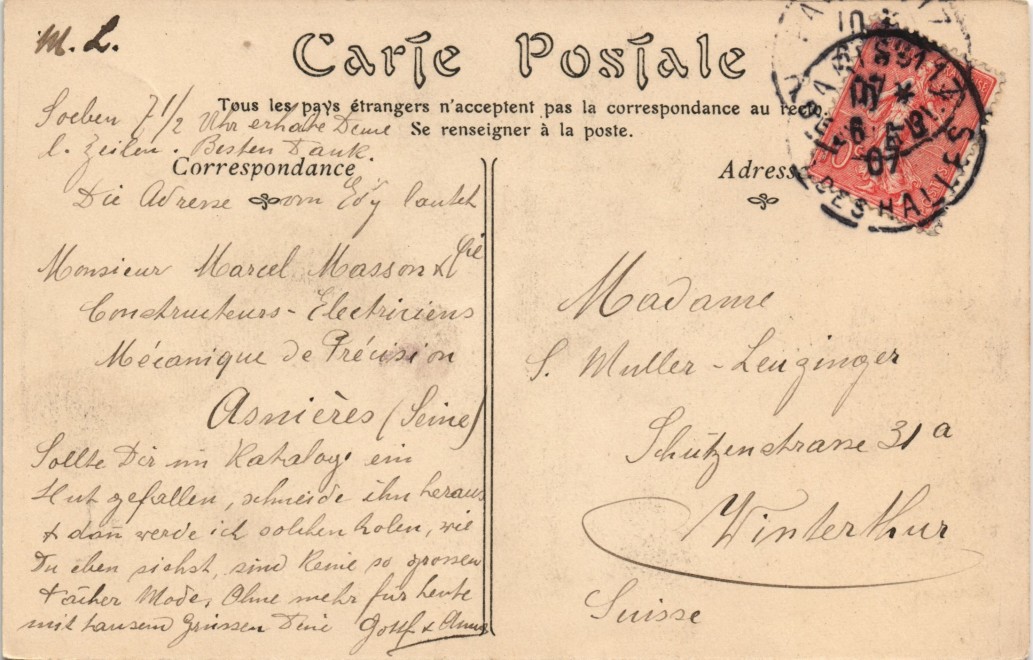 M. L.
Carte Postale
Tous les pays étrangers n'acceptent pas la correspondance au recto
Se renseigner à la poste.
Soeben 7 1/2 Uhr erhalte Deine
l. Zeilen. Besten Dank.
Correspondance
Die Adresse von Edy lautet
Monsieur Marcel Masson & Cie
Constructeurs-Electriciens
Mécanique de Précision
Asnières (Seine)
Sollte Dir im Katalog ein
Hut gefallen, schneide ihn heraus
& dann werde ich solchen holen, wie
Du eben siehst, sind keine so grossen
Mode. Ohne mehr für heute
mit tausend Grüssen Deine Gottf & Anna
Adresse
Madame
S. Muller-Leuzinger
Schützenstrasse 31a
Winterthur
Suisse
PARIS
DES HALLES
07